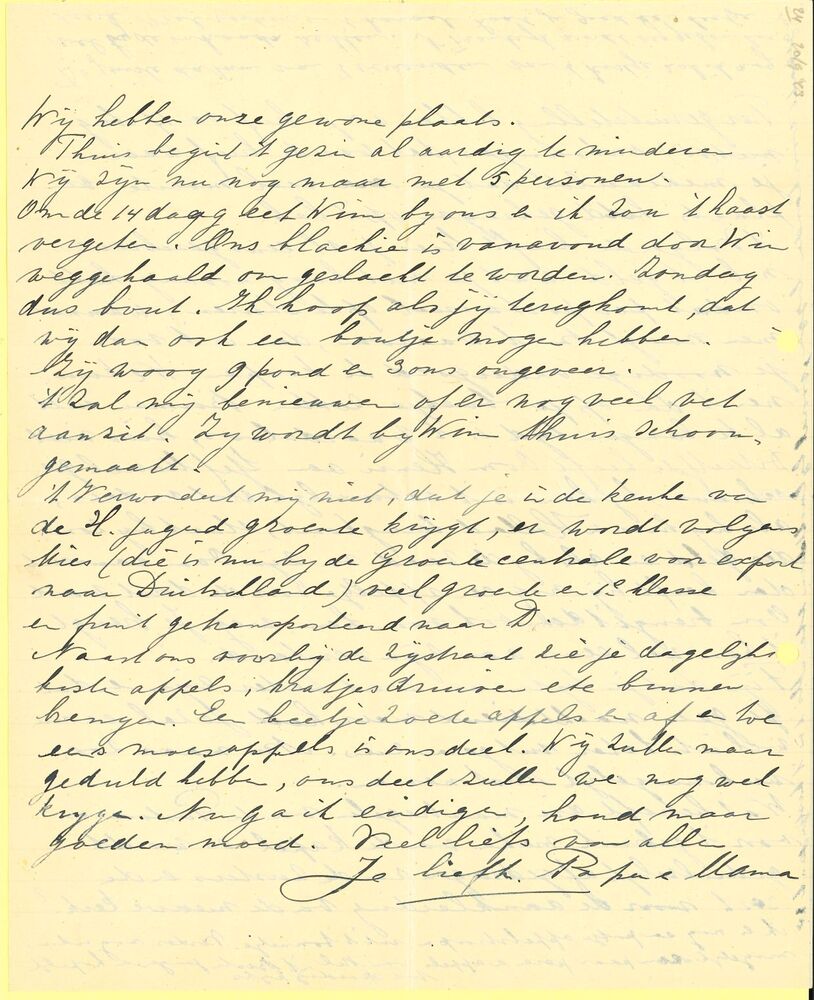 24 20/9 43
Wij hebben onze gewone plaats.
Thuis begint 't gezin al aardig te minderen
Wij zijn nu nog maar met 5 personen.
Om de 14 dagen eet Wim by ons en ik zou 't haast
vergeten. Ons blackie is vanavond door Wim
weggehaald om geslacht te worden. Zondag
dus bout. Ik hoop als jij terugkomt, dat
wij dan ook een boutje mogen hebben.
Zij woog 9 pond en 3 ons ongeveer.
't Zal mij benieuwen of er nog veel vet
aanzit. Zy wordt by Wim thuis schoon-
gemaakt.
't Verwondert mij niet, dat je in de keuken van
de H. Jugend groente krijgt, er wordt volgens
Mies (die is nu by de Groente centrale voor export
naar Duitschland) veel groente en 1e klasse
en fruit getransporteerd naar D.
Naast ons voorbij de zijstraat zie je dagelijks
kisten appels, kratjes druiven etc binnen
brengen. Een beetje zoete appels en af en toe
eens moesappels is ons deel. Wij zullen maar
geduld hebben, ons deel zullen we nog wel
krygen. Nu ga ik eindigen, houd maar
goeden moed. Veel liefs van allen
Je liefh. Papa e Mama